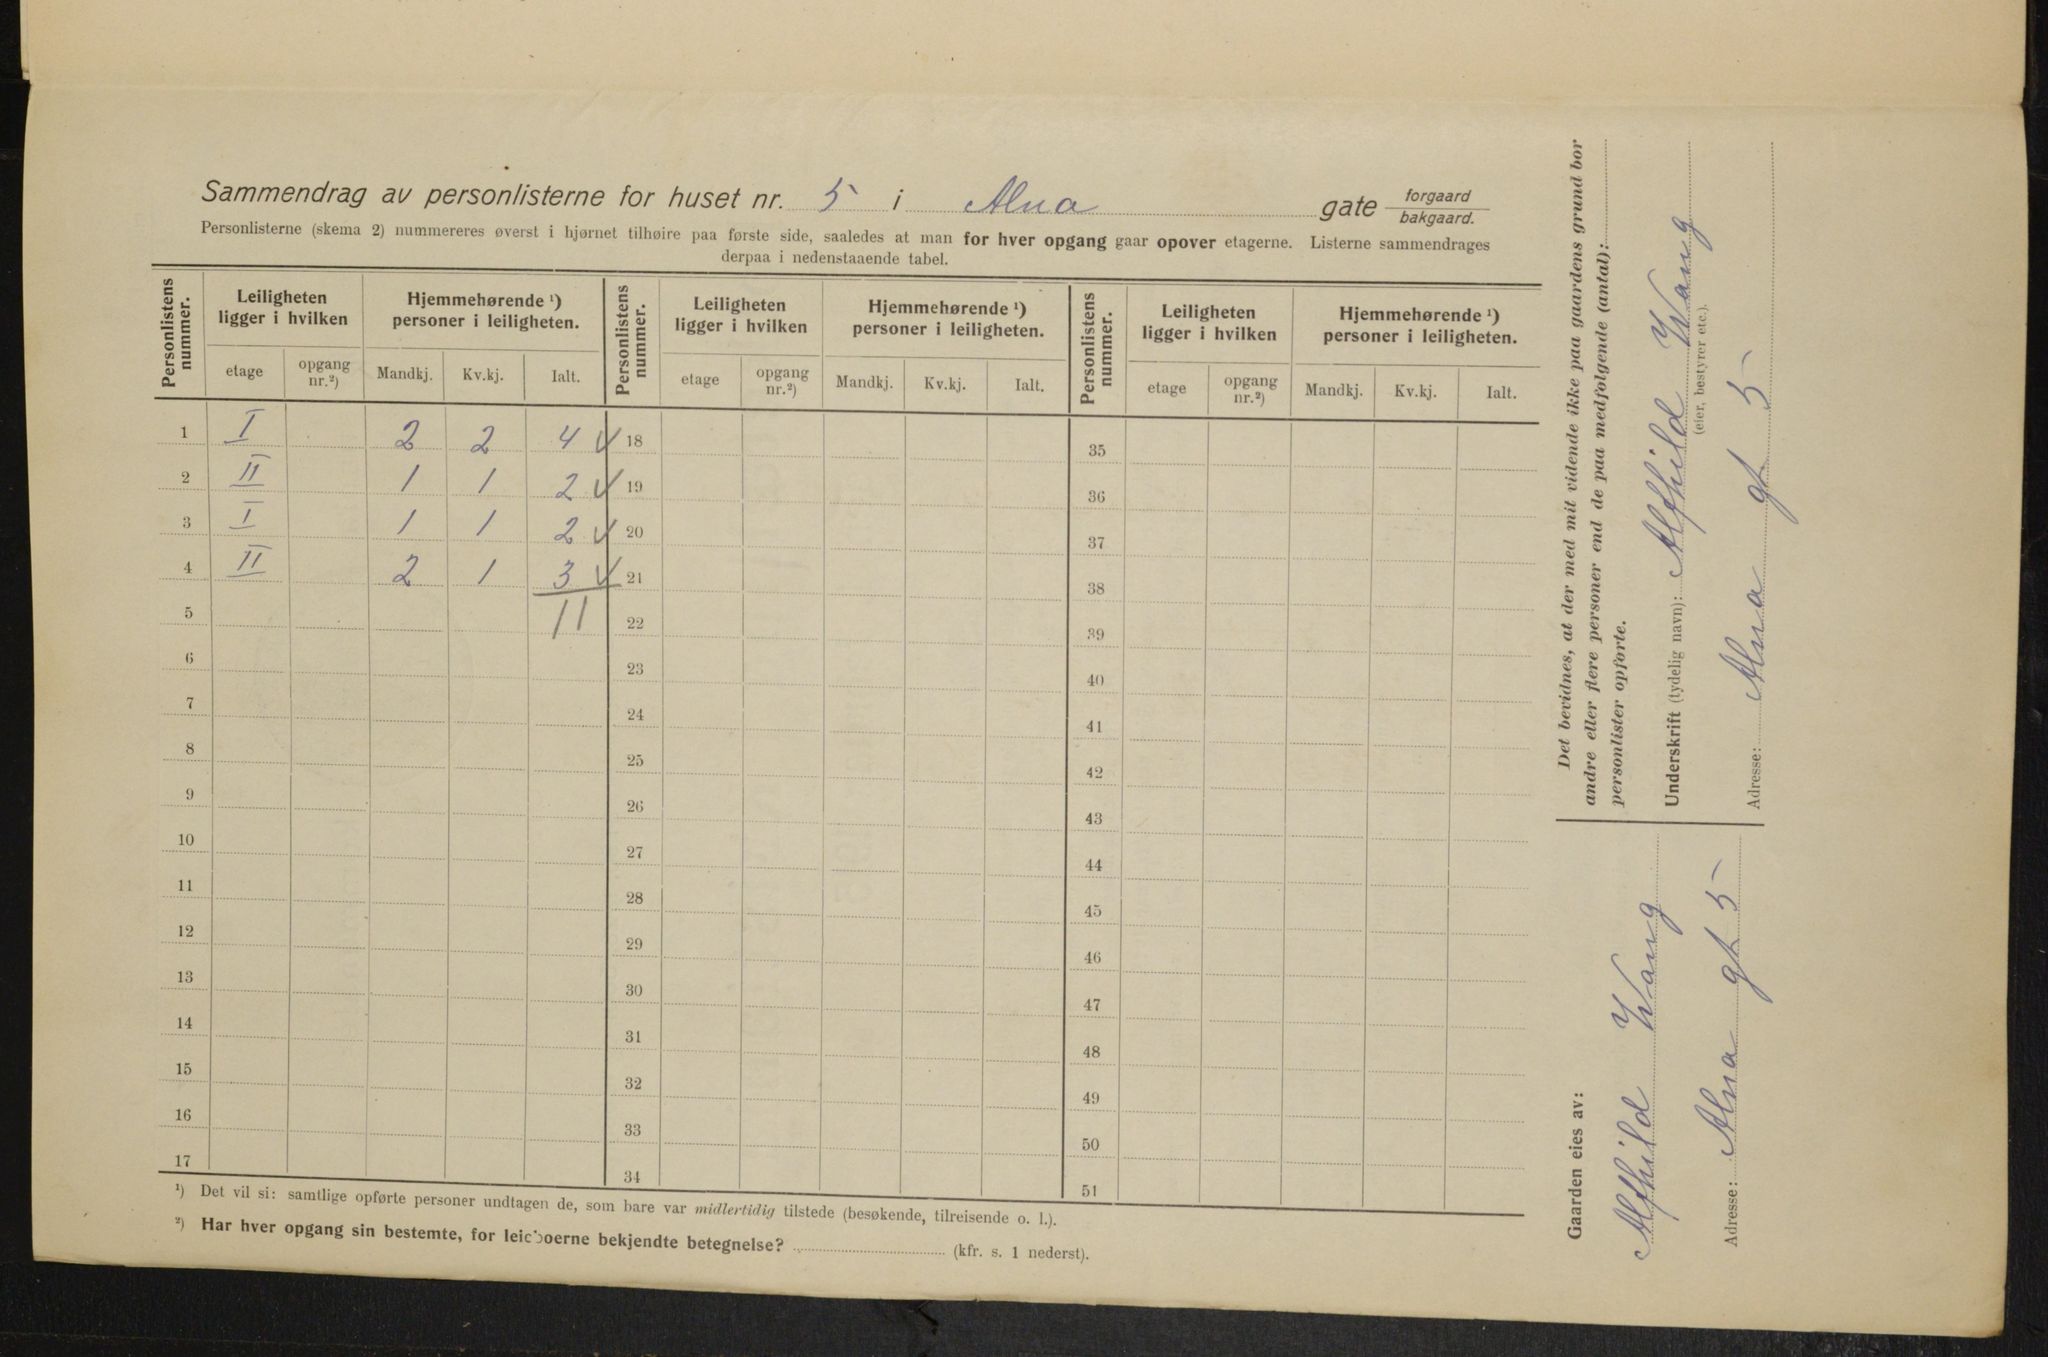 Sammendrag av personlisterne for huset nr. 5 i Alna gate forgaard bakgaard.
Personlisterne (skema 2) nummereres øverst i hjørnet tilhøire paa første side, saaledes at man for hver opgang gaar opover etagerne. Listerne sammendrages
derpaa i nedenstaaende tabel.
Personlistens nummer. Leiligheten ligger i hvilken Hjemmehørende ¹) personer i leiligheten. Personlistens nummer. Leiligheten ligger i hvilken Hjemmehørende ¹) personer i leiligheten. Personlistens nummer. Leiligheten ligger i hvilken Hjemmehørende ¹) personer i leiligheten.
etage opgang nr.²) Mandkj. Kv.kj. Ialt. etage opgang nr.²) Mandkj. Kv.kj. Ialt. etage opgang nr.²) Mandkj. Kv.kj. Ialt.
1 I 2 2 4 ✓ 18 35
2 II 1 1 2 ✓ 19 36
3 I 1 1 2 ✓ 20 37
4 II 2 1 3 ✓ 21 38
5 11 22 39
6 23 40
7 24 41
8 25 42
9 26 43
10 27 44
11 28 45
12 29 46
13 30 47
14 31 48
15 32 49
16 33 50
17 34 51
¹) Det vil si: samtlige opførte personer undtagen de, som bare var midlertidig tilstede (besøkende, tilreisende o. l.).
²) Har hver opgang sin bestemte, for leieboerne bekjendte betegnelse? (kfr. s. 1 nederst).
Det bevidnes, at der med mit vidende ikke paa gaardens grund bor
andre eller flere personer end de paa medfølgende (antal):
personlister opførte.
Underskrift (tydelig navn): Alfhild Wang
(eier, bestyrer etc.).
Adresse: Alna gt 5
Gaarden eies av:
Alfhild Wang
Adresse: Alna gt 5